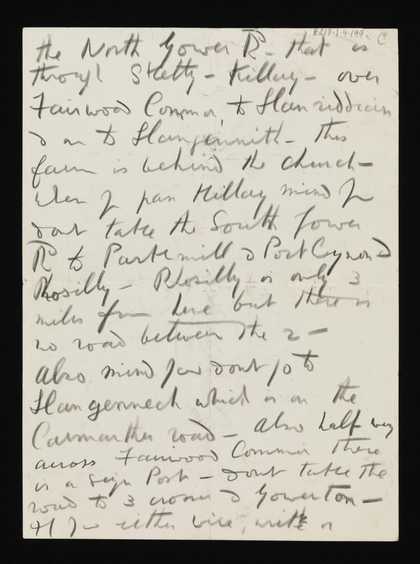 the North Gower Rd – that is
through Sketty – Killay – over
Fairwood Common, to Llanriddian
& on to Llangennith – This
farm is behind the church –
when you pass Killay mind you
dont take the South Gower
Rd to Parkmill & Port Eynon &
Rhosilly – Rhosilly is only 3
miles from here but there is
no road between the 2 –
Also mind you dont go to
Llangennech which is on the
Carmarthen road – also half way
across Fairwood Common there
is a sign Post – dont take the
road to 3 crosses & Gowerton –
If you either wire, write or